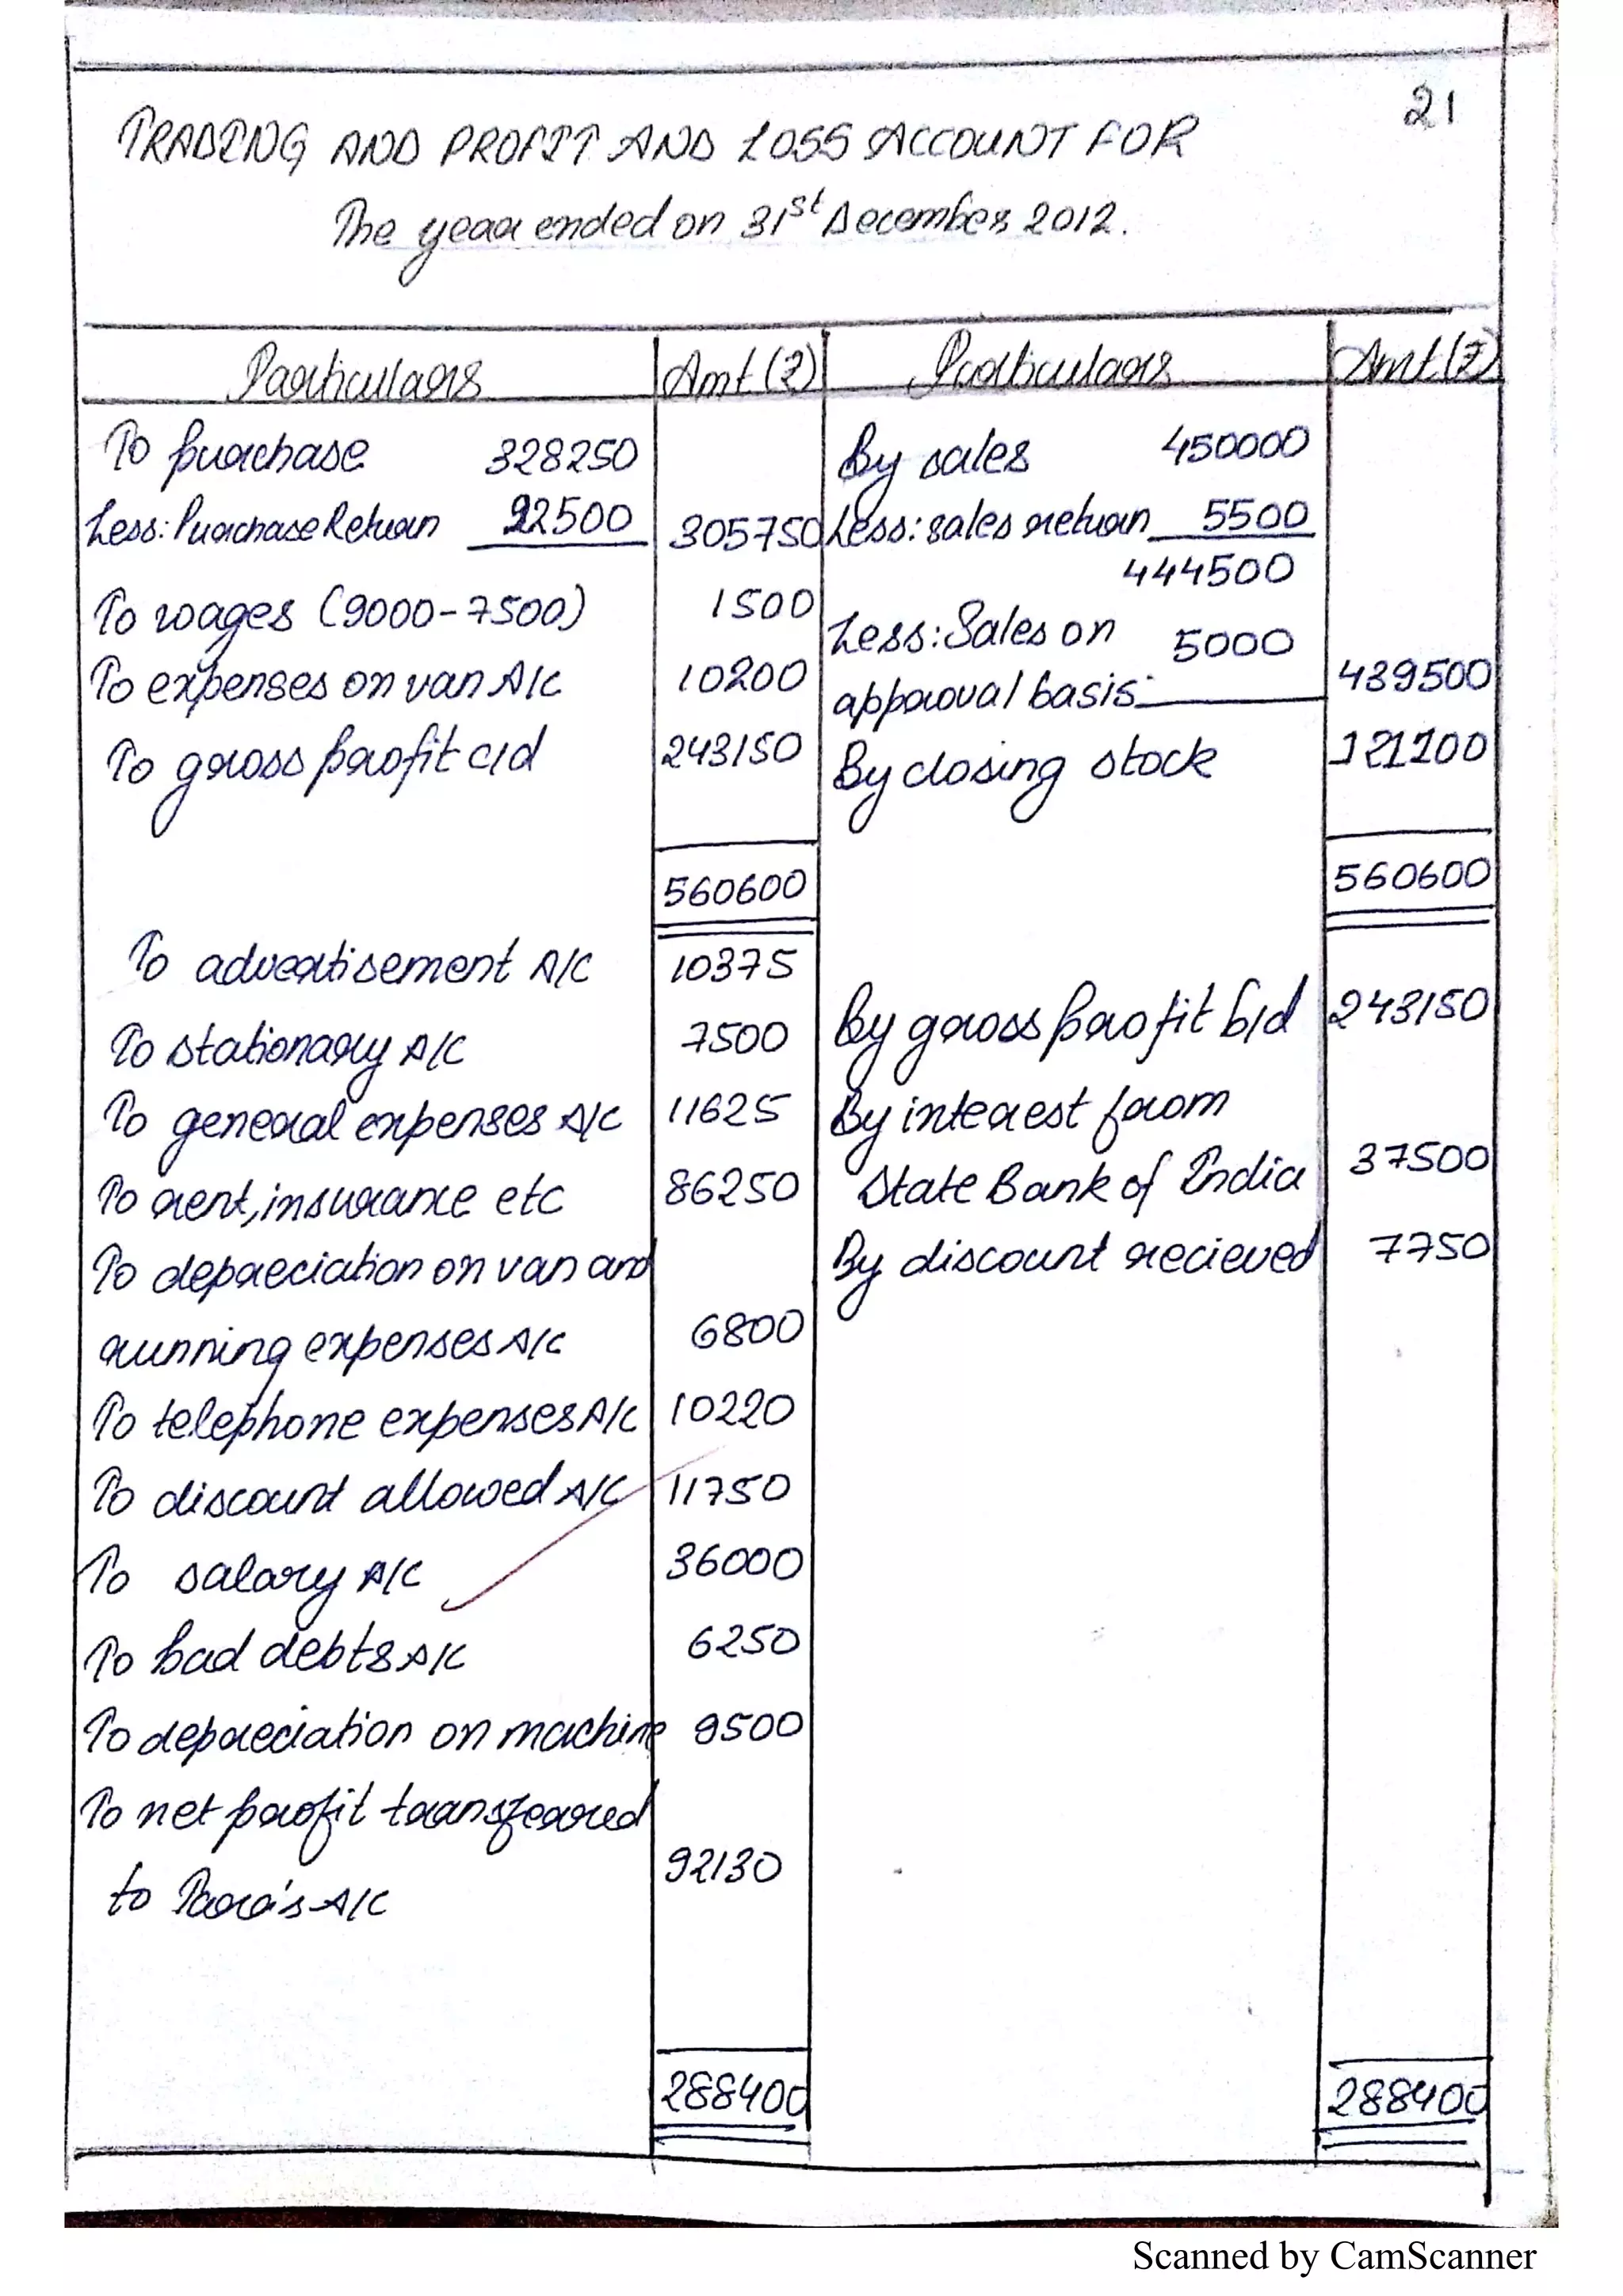 21
TRADING AND PROFIT AND LOSS ACCOUNT FOR
The year ended on 31st December 2012.
Particulars Amt(₹) Particulars Amt(₹)
To purchase 328250
Less: Purchase Return 22500 305750
To wages (9000-7500) 1500
To expenses on van A/c 10200
To gross profit c/d 243150
560600
To advertisement A/c 10375
To stationary A/c 7500
To general expenses A/c 11625
To rent, insurance etc 86250
To depreciation on van and
running expenses A/c 6800
To telephone expenses A/c 10220
To discount allowed A/c 11750
To salary A/c 36000
To bad debts A/c 6250
To depreciation on machine 9500
To net profit transferred
to Para's A/c 92130
288400
By sales 450000
Less: sales return 5500
444500
Less: Sales on 5000
approval basis 439500
By closing stock 121100
560600
By gross profit b/d 243150
By interest from
State Bank of India 37500
By discount recieved 7750
288400
Scanned by CamScanner